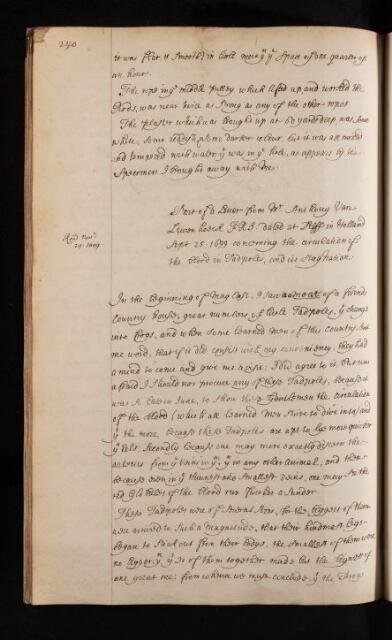 240
it was flat & smooth) in little more yn ye space of one quarter of
an hour.
The rope in ye middle pulley which lifted up and worked the
Rods, was near twice as strong as any of the other ropes
The plaster which was brought up at 60 yards deep was some
white, some reddish some darker colour, but it was all mixed
and tempered with water yt was in ye hole, as appears by the
specimen I brought away with me.
Part of a Letter from Mr Anthony Van
Leuwenhoeck F.R.S. dated at Delff in Holland
Sept 25. 1699 concerning the circulation of
the blood in Tadpoles, and its stagnation.
Read Novr
29. 1699
In the beginning of May last, I saw
Country house, great numbers of little Tadpoles, ye change
into Frogs, and when some learned men of this Country
me word, that if it did consist with my conveniency, they had
a mind to come and give me a visit; I did agree to it, but was
afraid I should not procure any of these Tadpoles, because it
was so late in June, to show these Gentlemen the circulation
of the blood (which all learned Men strive to dive into) and
ye the more, because these Tadpoles are apt to
ye Eels, secondly because one may more exactly discern the
arteries from ye veins in ym yn in any other animal, and then
because even in ye thinnest and smallest veins, one may see the
red Globules of the blood run further asunder.
These Tadpoles were of several sizes, for the biggest of them
were arrived to such a magnitude, that their hindmost legs
began to stick out from their bodys, the smallest of them were
no bigger yn yt 30 of them together made but the bigness of
one great one: from whence we must conclude, yt the Frogs